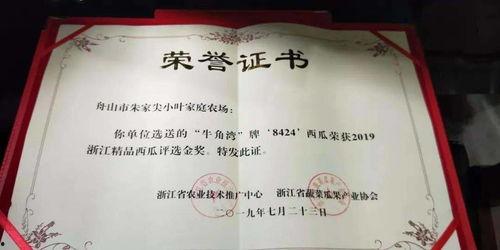 荣誉证书
舟山市朱家尖小叶家庭农场：
你单位选送的“牛角湾”牌‘8424’西瓜荣获2019
浙江精品西瓜评选金奖。特发此证。
浙江省农业技术推广中心 浙江省蔬菜瓜果产业协会
二〇一九年七月二十三日